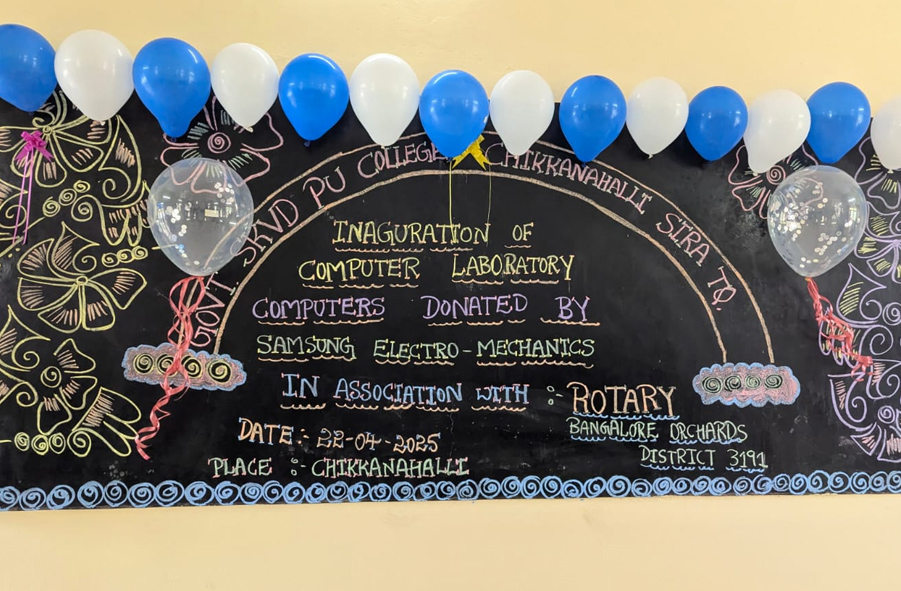 GOVT SKVD PU COLLEGE CHIKKANAHALLI SIRA TQ.
INAGURATION OF
COMPUTER LABORATORY
COMPUTERS DONATED BY
SAMSUNG ELECTRO-MECHANICS
IN ASSOCIATION WITH :- ROTARY
BANGALORE ORCHARDS
DISTRICT 3191
DATE:- 28-04-2025
PLACE :- CHIKKANAHALLI